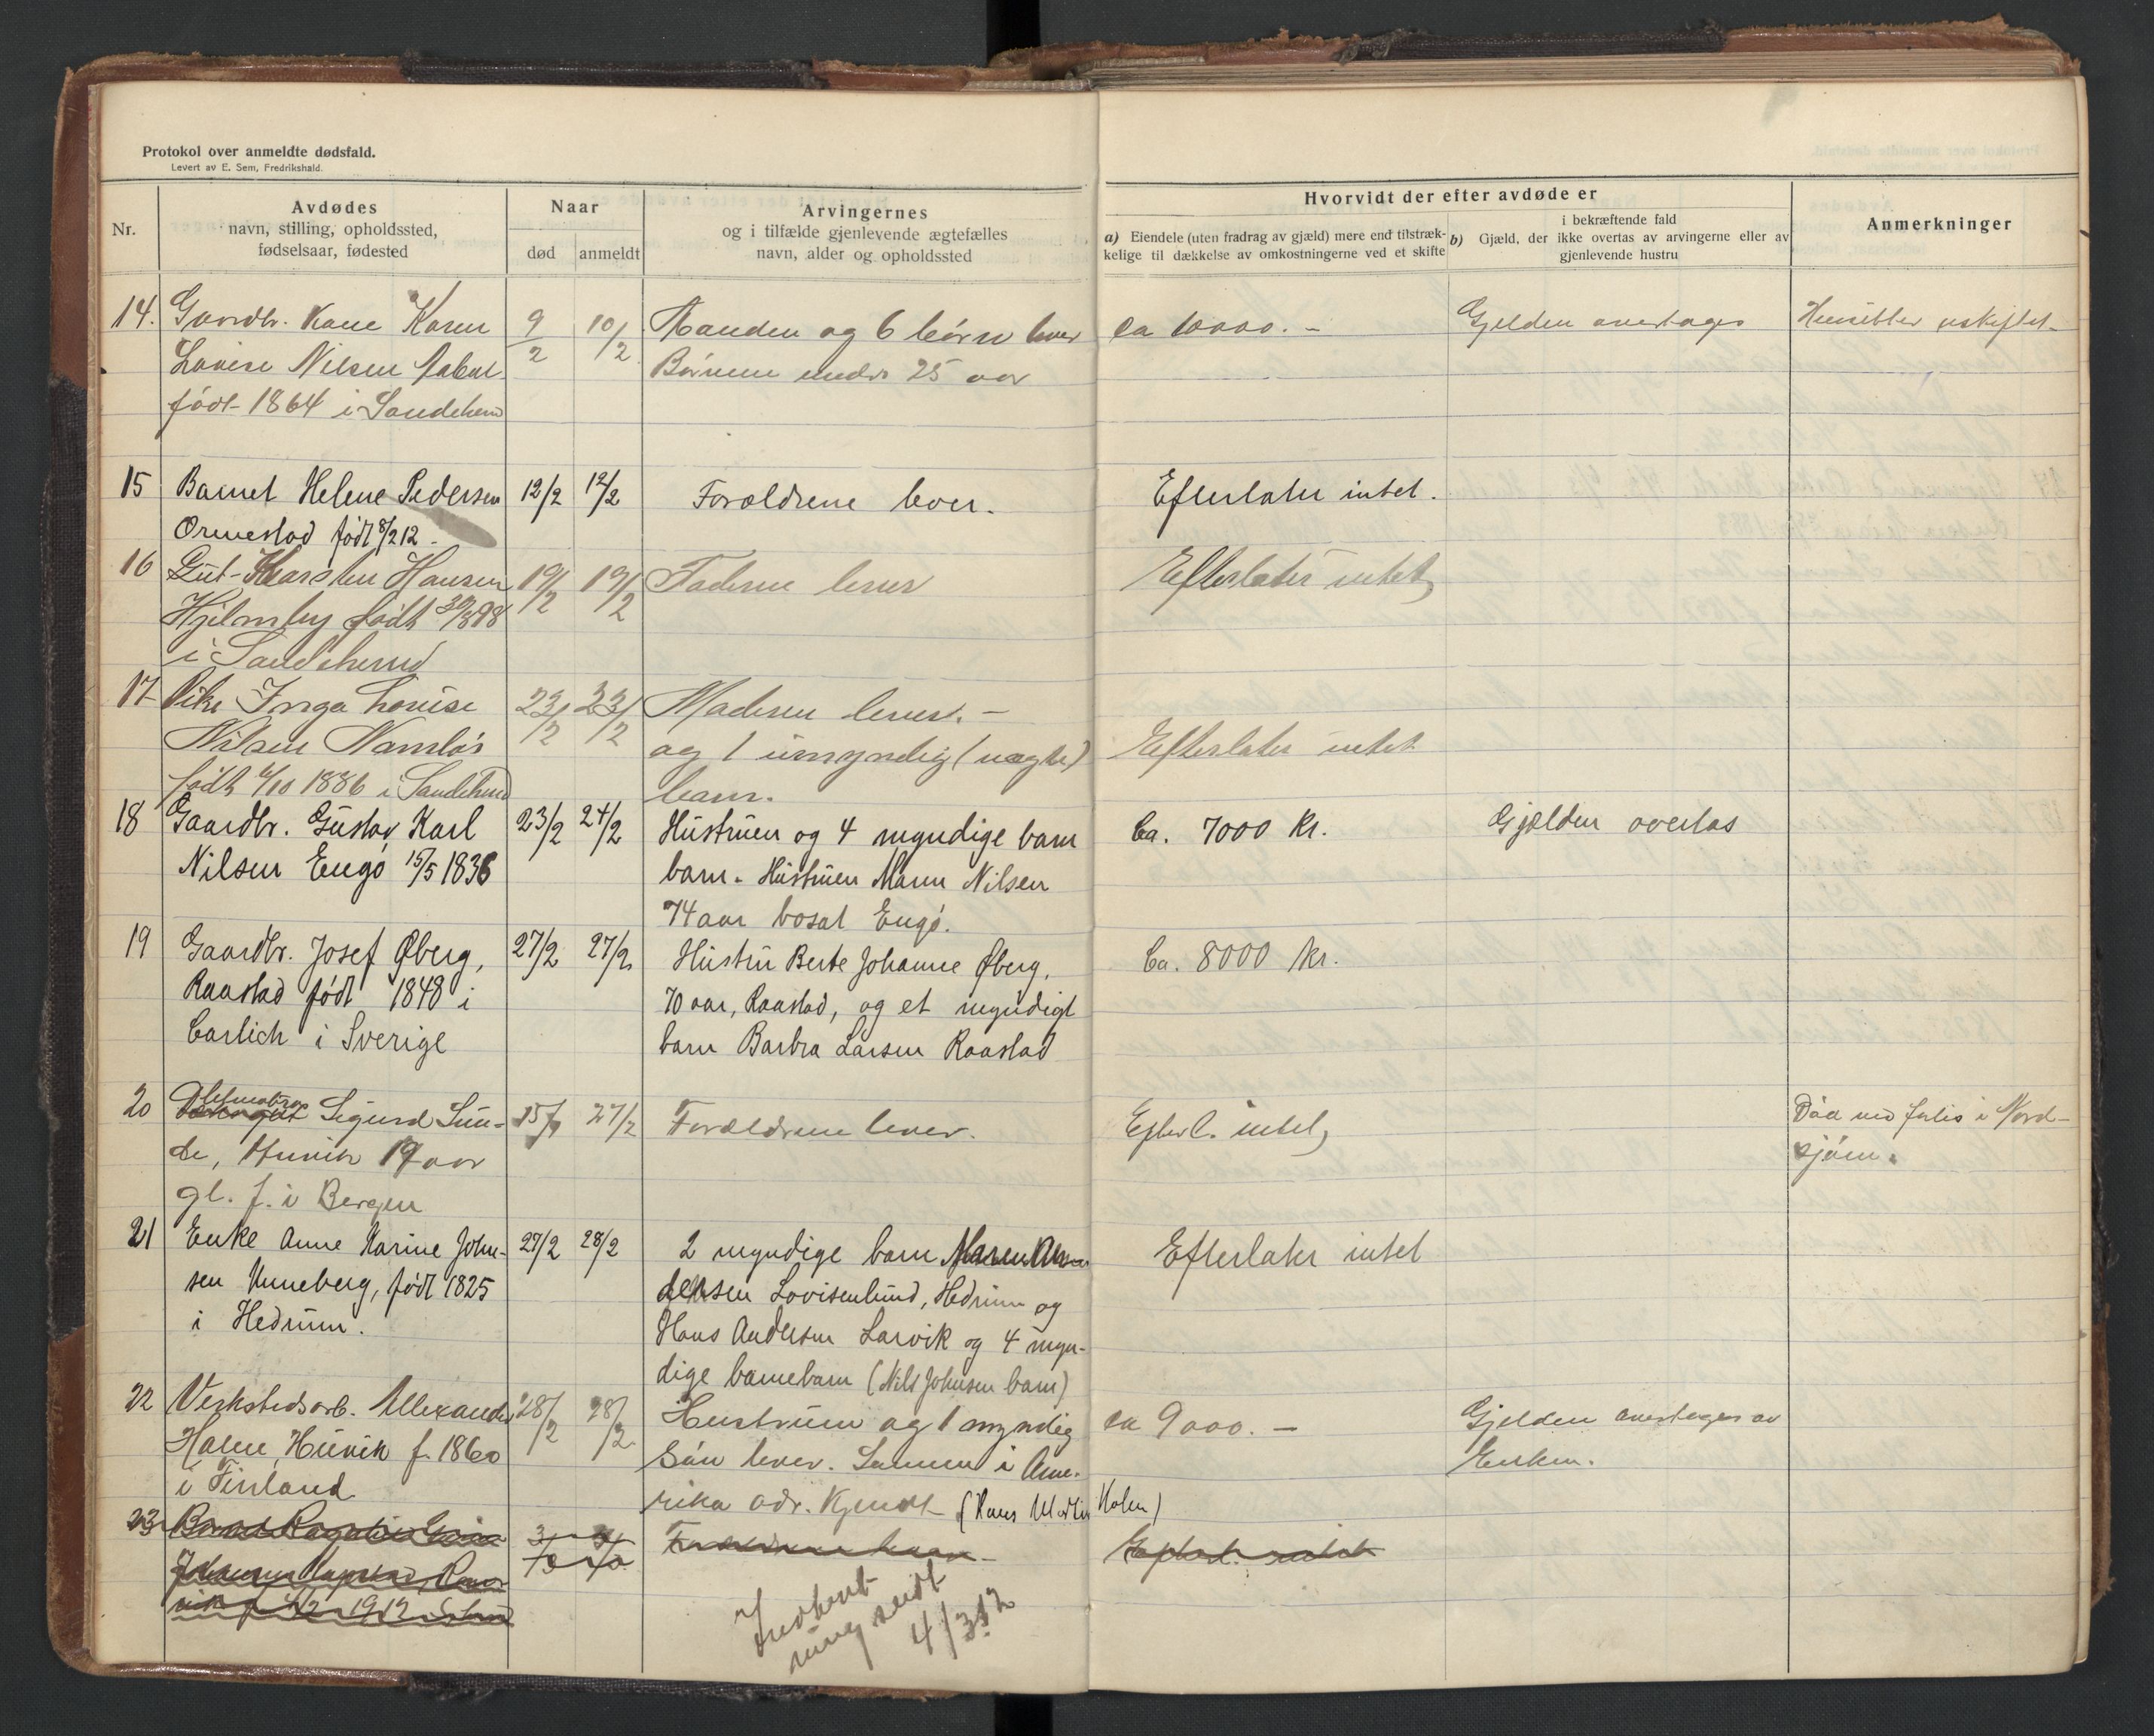 Protokol over anmeldte dødsfald.
Levert av E. Sem, Fredrikshald.
Nr.
Avdødes
navn, stilling, opholdssted,
fødselsaar, fødested
Naar
død
anmeldt
Arvingernes
og i tilfælde gjenlevende ægtefælles
navn, alder og opholdssted
Hvorvidt der efter avdøde er
a) Eiendele (uten fradrag av gjæld) mere end tilstræk-
kelige til dækkelse av omkostningerne ved et skifte
i bekræftende fald
b) Gjæld, der ikke overtas av arvingerne eller av
gjenlevende hustru
Anmerkninger
14. Gaardbr. Kone Karen
Lovise Nilsen
født 1864 i Sandeherred
9/2 10/2
Manden og 6 börn lever
Börnene under 25 aar
ca 10000. -
Gjelden overtages
Hensitter uskiftet
15 Barnet Helene Pedersen
Ormestad født 8/2 12.
12/2 12/2
Forældrene lever.
Efterlater intet.
16 Gut Karsten Hansen
Hjelmby födt
i Sandeherred
19/2 19/2
Faderen lever
Efterlater intet
17 Pike Inga Louise
Nilsen Namløs
født 6/10 1886 i Sandeherred
23/2 23/2
Moderen lever. -
og 1 umyndig (uægte)
barn.
Efterlater intet
18 Gaardbr. Gustav Karl
Nilsen Engø 15/5 1836
23/2 24/2
Hustruen og 4 myndige barn
barn. Hustruen Maren Nilsen
74 aar bosat Engø.
Ca. 7000 Kr.
Gjælden overtas
19 Gaardbr. Josef Øberg,
Raastad født 1848 i
Carlich i Sverige
27/2 27/2
Hustru Berte Johanne Øberg,
70 aar, Raastad, og et myndigt
barn Barbra Larsen Raastad
Ca. 8000 Kr.
20 Sigurd Sun-
de, Huvik 19 aar
gl. f. i Bergen
27/2
Forældrene lever.
Efterl. intet
Död ved forlis i Nord-
sjöen.
21 Enke Anne Karine John-
sen Unneberg, født 1825
i Hedrum.
27/2 28/2
2 myndige barn Maren
Lovisenlund, Hedrum og
Hans Andersen Larvik og 4 myn-
dige barnebarn (Nils Johnsen barn)
Efterlater intet
22 Verkstedsarb. Allexander
Holm, Huvik f. 1860
i Finland
28/2 28/2
Hustruen og 1 myndig
Sön lever. Sönnen i Ame-
rika adr. kjendt (Hans Martin Holm)
ca 9000. -
Gjelden overtages av
Enken.
23
Forældrene lever
Efterl. intet
Indberet
ning sendt
4/3 12